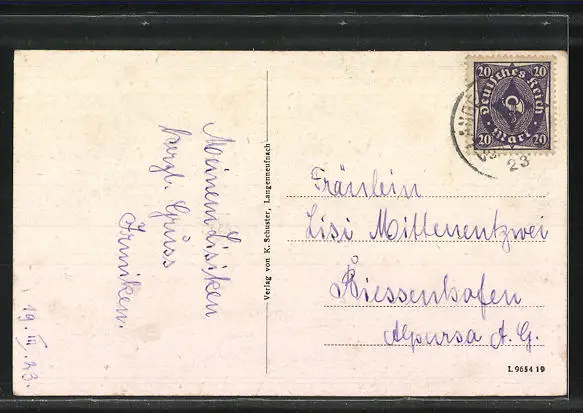 Meinem Lisiken
herzl. Gruss
Irmiken.
19. III. 23.
Verlag von K. Schuster, Langenneufnach
20 20
Deutsches Reich
Mark
20 20
LANG
23
Fräulein
Lisi Mittenentzwei
Biessenhofen
Alpursa A.G.
L 9654 19